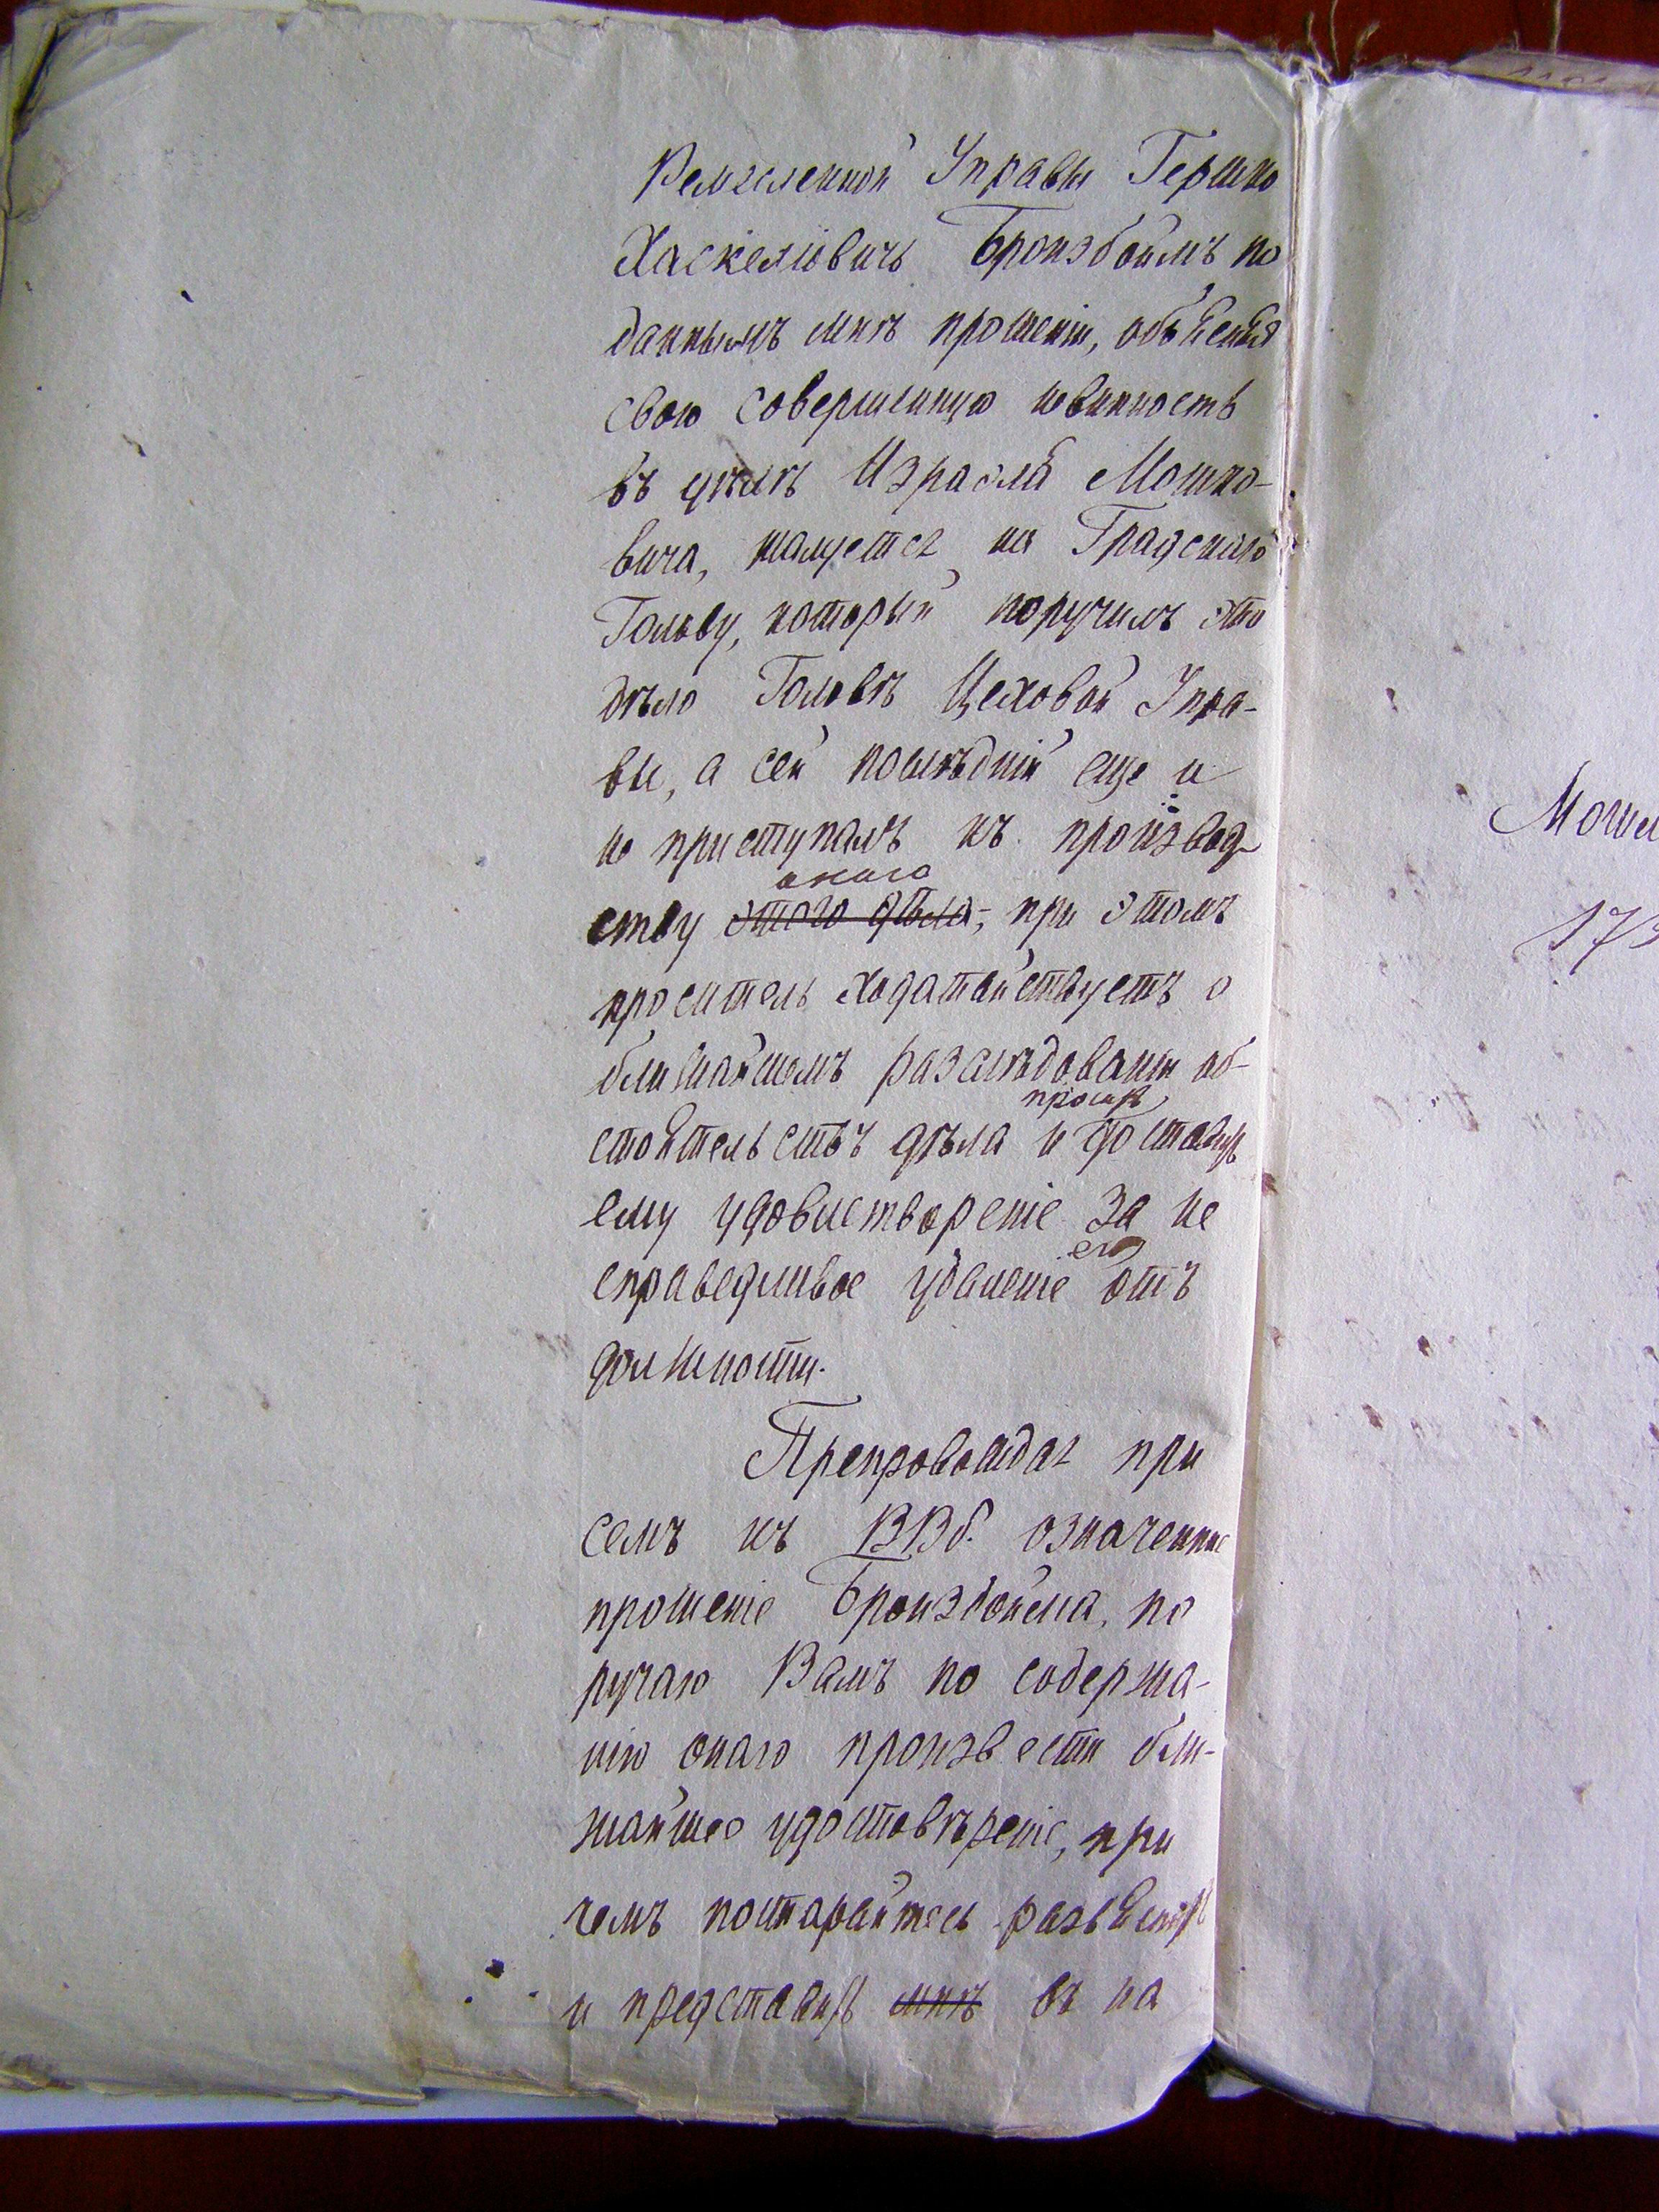 Ремесленной Управы Гершко
Хаскелiовичъ Бронзбоймъ по
даннымъ мнѣ прошенiи, объясняя
свою совершенную невинность
въ дѣлѣ Израеля Мошко-
вича, жалуется на Градскаго
Голову, который поручилъ это
дѣло Головѣ Цеховой Упра-
вы, а сей послѣднiй еще и
не приступалъ къ производ-
онаго
ству этого дѣла, при этомъ
проситель ходатайствуетъ о
ближайшемъ разслѣдованiи об-
проситъ
стоятельствъ дѣла и доставить
ему удовлетворенiе за не
его
справедливое удаленiе отъ
должности.
Препровождая при
семъ къ ВВб. означенное
прошенiе Бронзбойма, по
ручаю Вамъ по содержа-
нiю онаго произвести бли-
жайшее удостовѣренiе, при
чемъ постарайтесь разъяснить
и представить мнѣ въ на
Могил
173